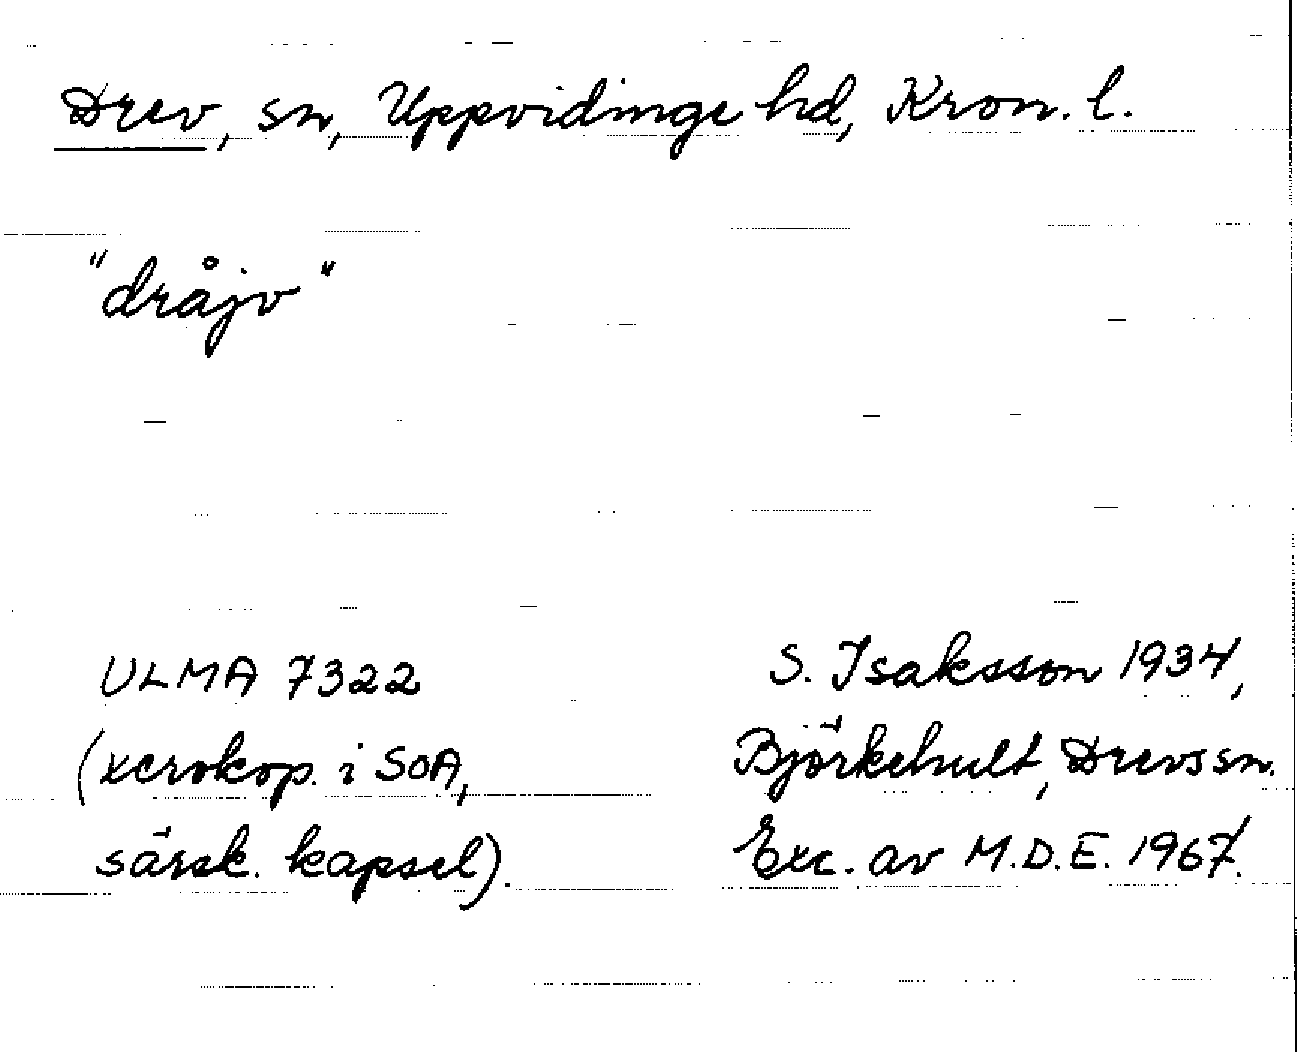 Drev, sn, Uppvidinge hd, Kron. l.
"dråjv"
ULMA 7322
(xerokop. i SOA,
särsk. kapsel).
S. Isaksson 1934,
Björkehult, Drevs sn.
Exc. av M.D.E. 1967.